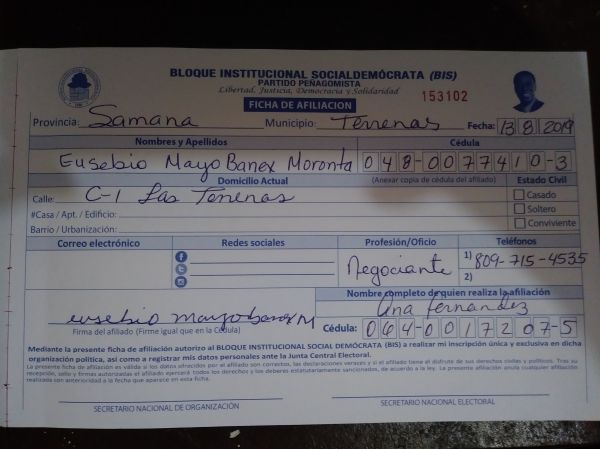 BLOQUE INSTITUCIONAL SOCIALDEMÓCRATA (BIS)
PARTIDO PEÑAGOMISTA
Libertad, Justicia, Democracia y Solidaridad
FICHA DE AFILIACION
153102
Provincia: Samana Municipio: Terrenas Fecha: 13 8 2019
Nombres y Apellidos Cédula
Eusebio Mayo Banex Moronta 048-0077410-3
Domicilio Actual (Anexar copia de cédula del afiliado) Estado Civil
Calle: C-1 Las Terrenas Casado
#Casa / Apt. / Edificio: Soltero
Barrio / Urbanización: Conviviente
Correo electrónico Redes sociales Profesión/Oficio Teléfonos
Negociante 1) 809-715-4535
2)
Nombre completo de quien realiza la afiliación
eusebio mayo banex M Ana fernandez
Firma del afiliado (Firme igual que en la Cédula) Cédula: 064-0017207-5
Mediante la presente ficha de afiliación autorizo al BLOQUE INSTITUCIONAL SOCIAL DEMÓCRATA (BIS) a realizar mi inscripción única y exclusiva en dicha
organización política, así como a registrar mis datos personales ante la Junta Central Electoral.
La presente ficha de afiliación es válida si los datos ofrecidos por el afiliado son correctos, las declaraciones veraces y si el afiliado tiene el disfrute de sus derechos civiles y políticos. Tras su
recepción, sello y firmas autorizadas el afiliado ejercerá todos los derechos y los deberes estatutariamente sancionados, de acuerdo a la ley. La presente afiliación anula cualquier afiliación
realizada con anterioridad a la fecha que aparece en esta ficha.
SECRETARIO NACIONAL DE ORGANIZACIÓN SECRETARIO NACIONAL ELECTORAL